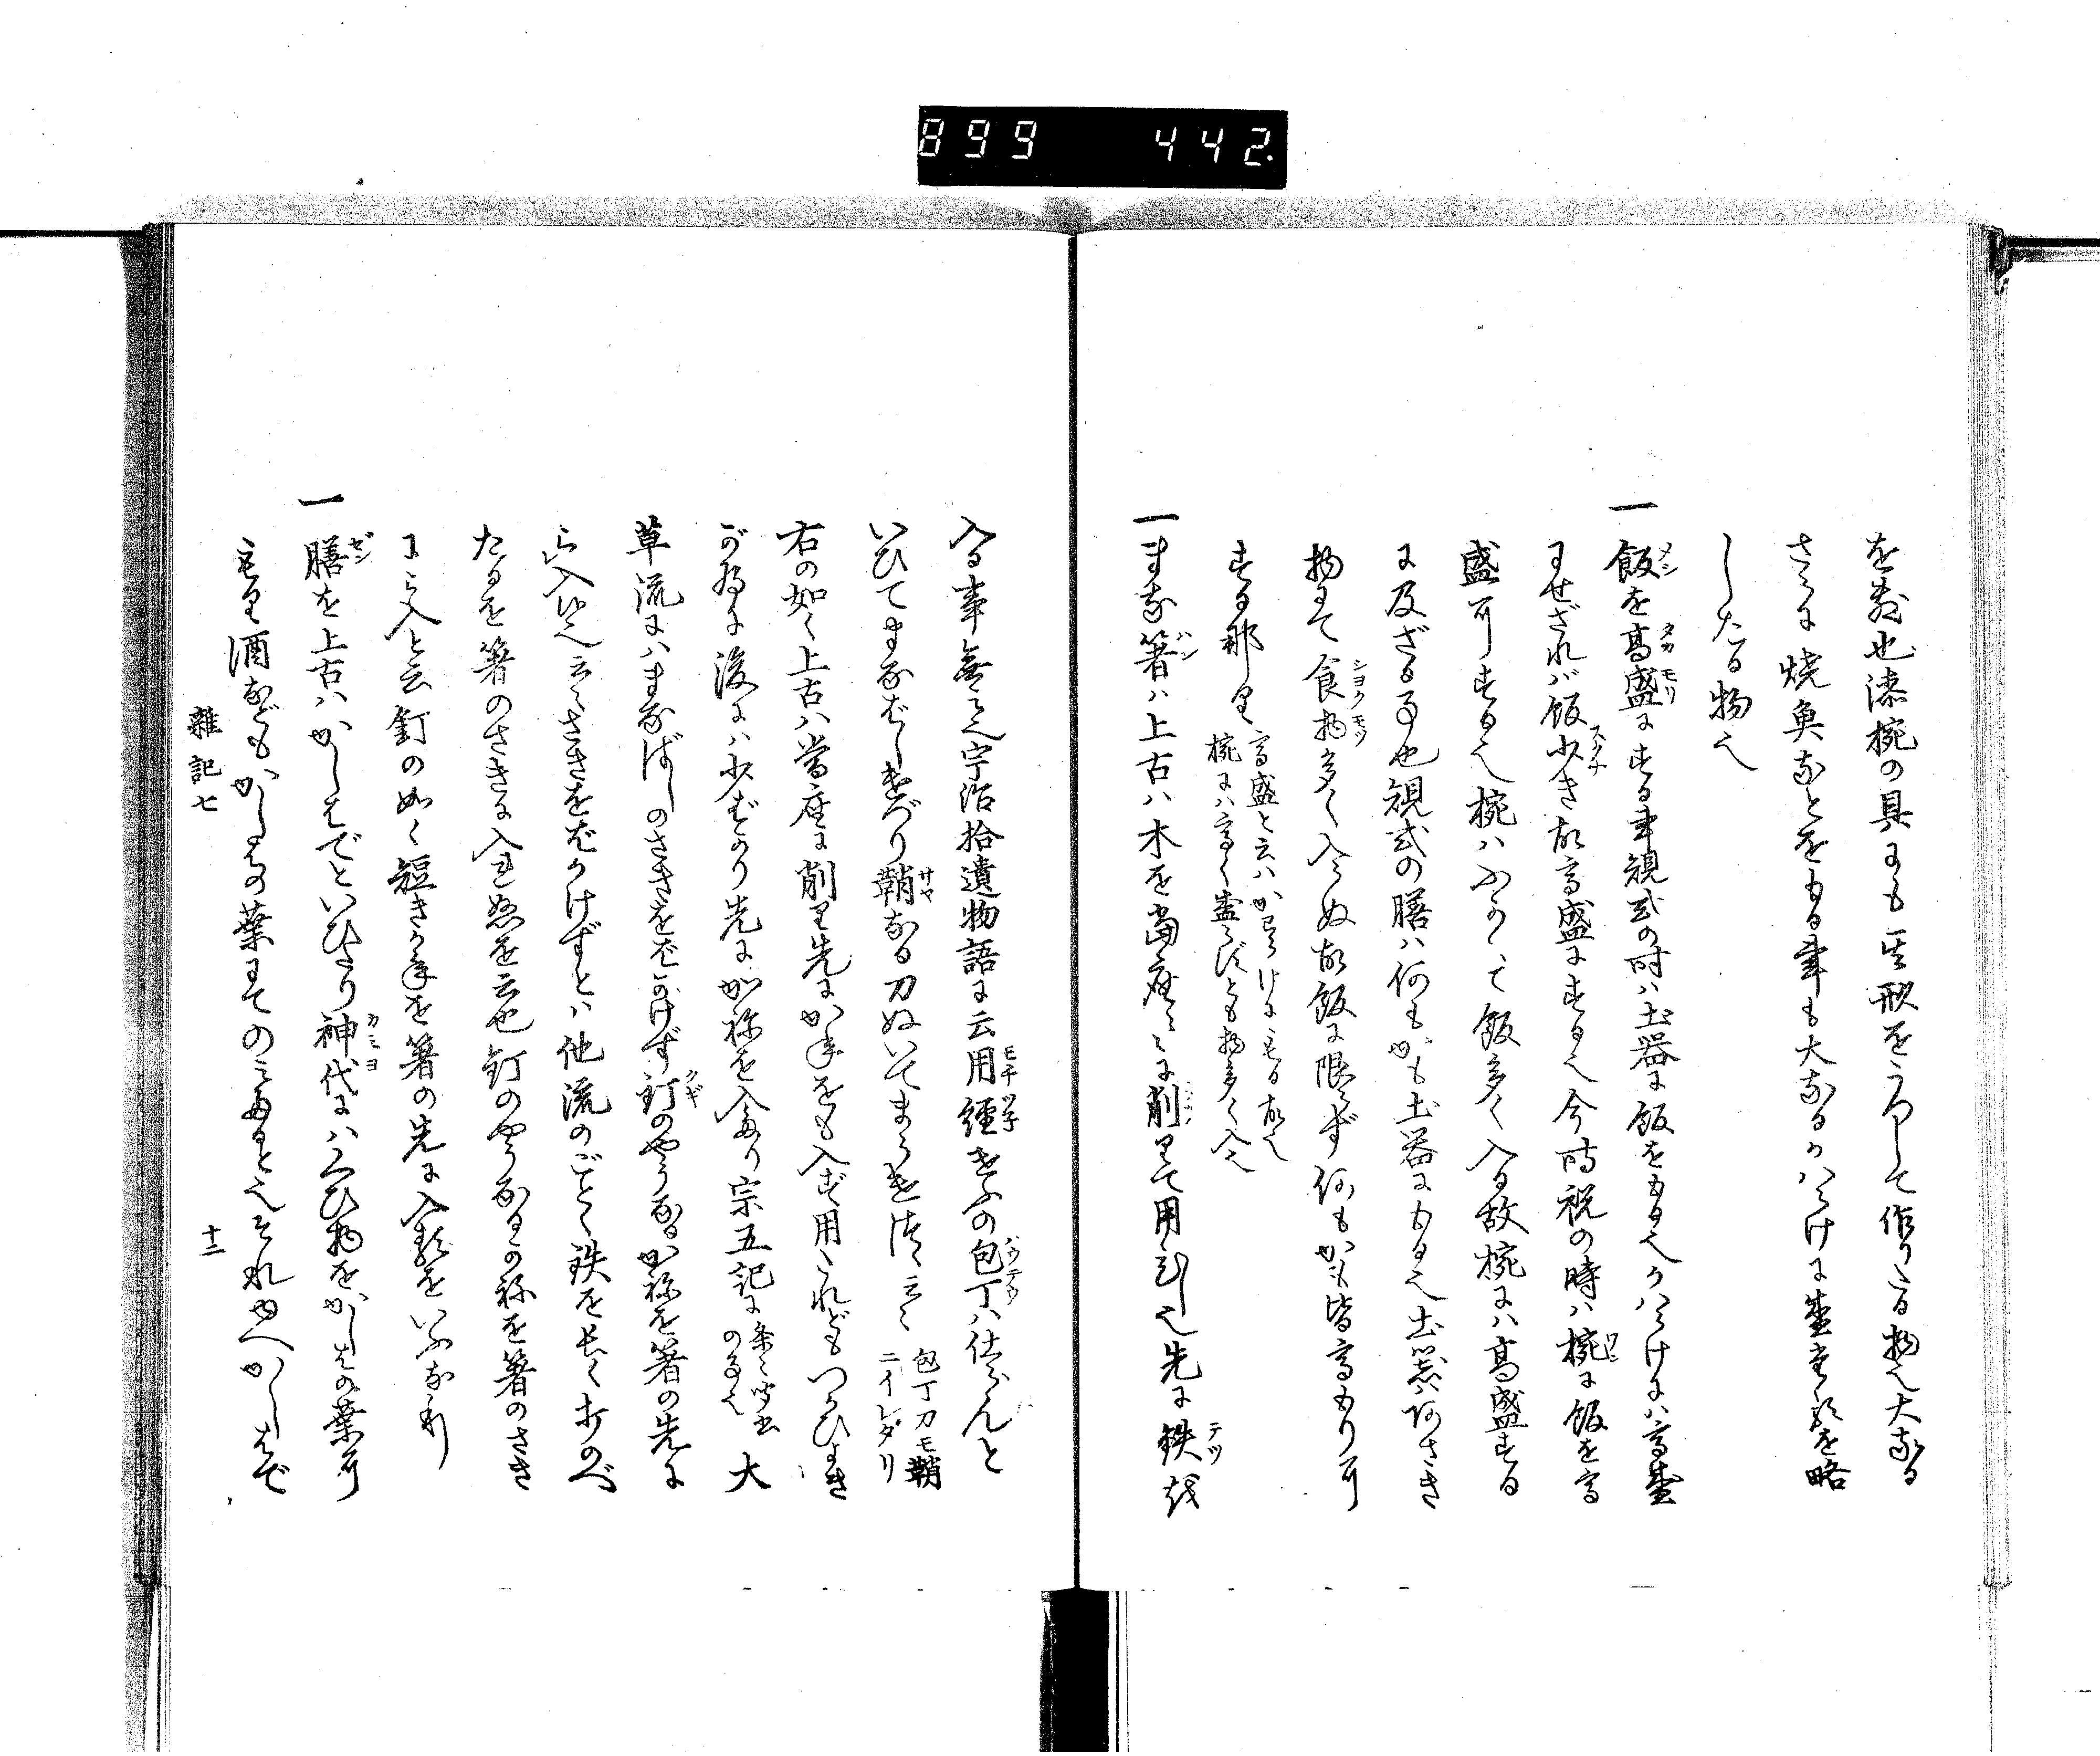 899 442.
を敷也漆椀の具にも其形をうつして作りたる物也大なる
さらに焼魚なとをもる事も大なるかはらけに盛事を略
したる物也
一飯を高盛にする事規式の時ハ土器に飯をもる也かはらけにハ高盛
にせざれバ飯少き故高盛にする也今時祝の時ハ椀に飯を高
盛にする也椀ハふかくて飯多く入る故椀にハ高盛する
に及ざる事也規式の膳ハ何もかも土器にもる也土器ハあさき
物にて食物多く入らぬ故飯に限らず何もかも皆高もりに
する那り 高盛と云ハかはらけにもる故也
椀にハ高く盛らずとも物多く入也
一まな箸ハ上古ハ木を当座に削りて用ひし也先に鉄を
入る事無之宇治拾遺物語に云用経けふの包丁ハ仕らんと
いひてまなばしけづり鞘なる刀ぬいてまうけ 云々 包丁刀モ鞘
ニイレタリ
右の如く上古ハ当座に削り先にかねをも入ず用これどもつかひよき
が為に後にハ少ばかり先にかねを入たり宗五記に 条々聞書
の事也 大
草流にハまなばしのさきをばかけず釘のやうなるかねを箸の先に
入 云々さきをばかけずとハ他流のごとく鉄を長く打のべ
たるを箸のさきに入ざるを云也釘のやうなるかねを箸のさき
に入と云釘の如く短きかねを箸の先に入るをいふなり
一膳を上古ハかしはでといひたり神代にハくひ物をかしはの葉に
もり酒などもかしはの葉にてのみたると也それゆへかしはで
雑記七
十二